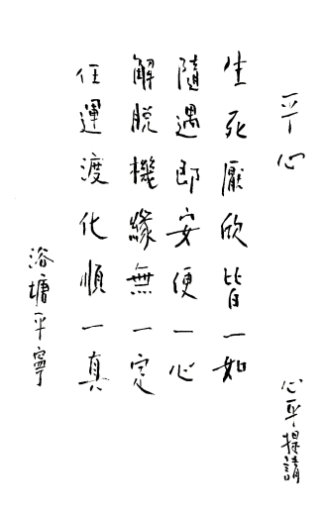 平心
心平提請
生死厭欣皆一如
隨遇即安便一心
解脫機緣無一定
任運渡化順一真
浴塘平寧